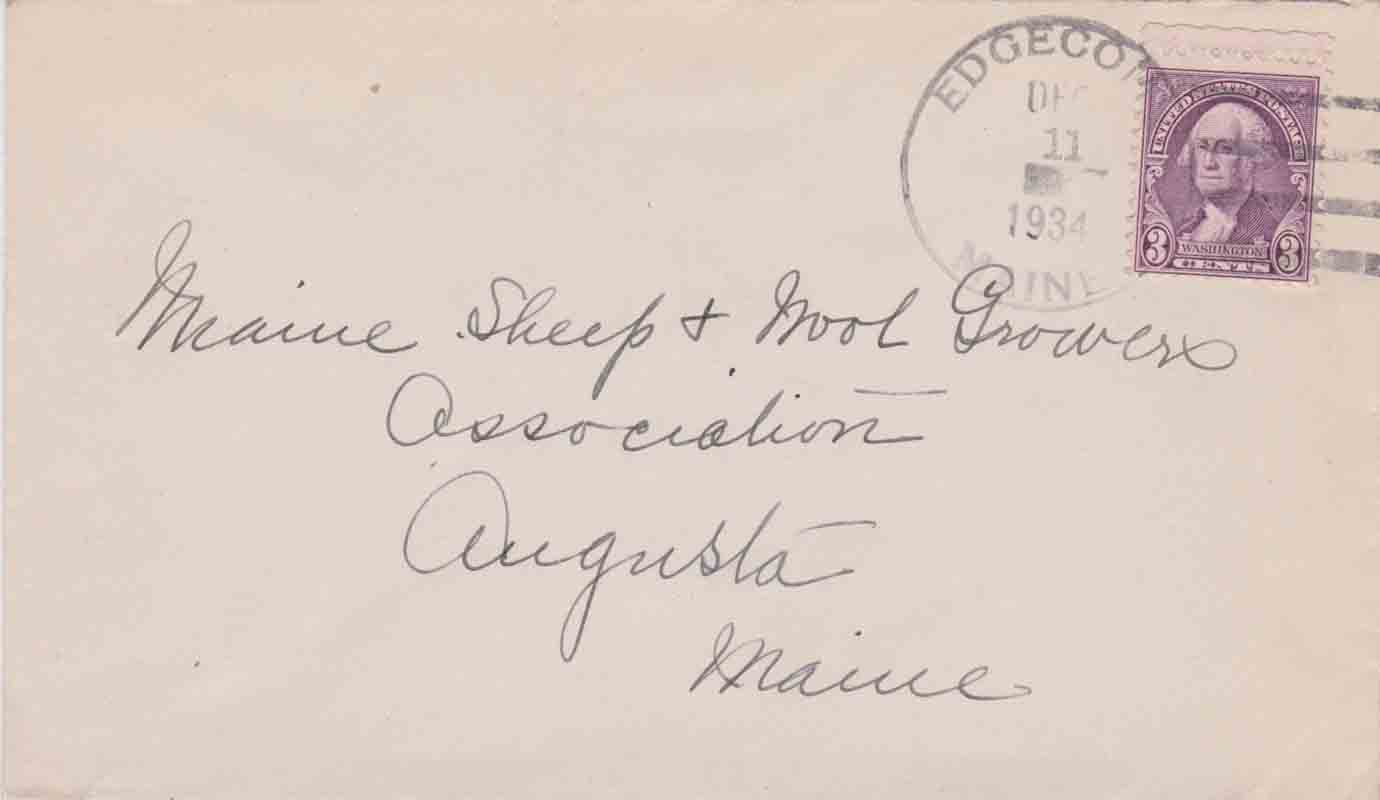 EDGECOM
DEC
11
1934
MAINE
UNITED STATES POSTAGE
3 WASHINGTON 3
CENTS
Maine Sheep & Wool Growers
Association
Augusta
Maine